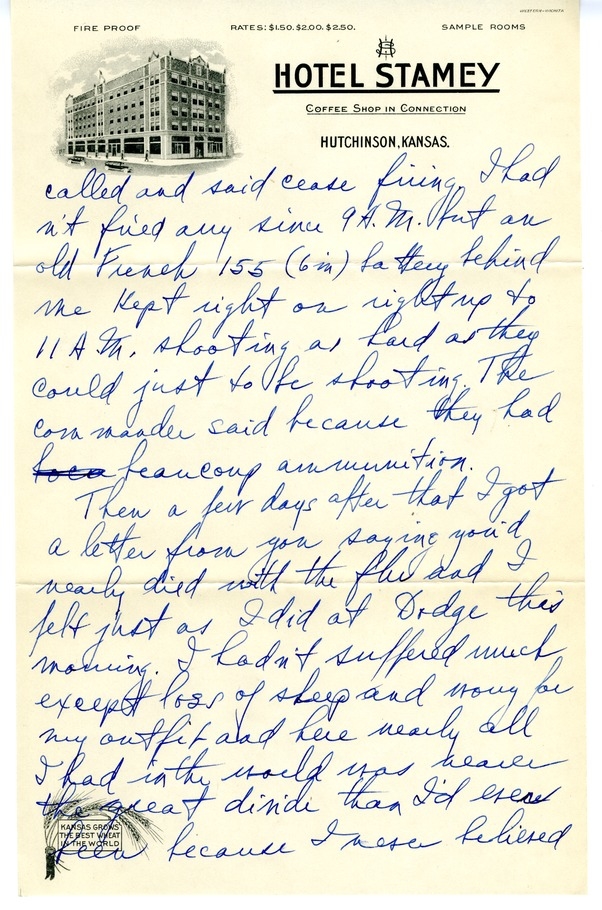 WESTERN-WICHITA
FIRE PROOF
RATES: $1.50. $2.00. $2.50.
SAMPLE ROOMS
HS
HOTEL STAMEY
COFFEE SHOP IN CONNECTION
HUTCHINSON, KANSAS.
called and said cease firing. I had
n't fired any since 9 A.M. but an
old French 155 (6in) battery behind
me Kept right on right up to
11 A.M. shooting as hard as they
could just to be shooting. The
commander said because they had
boca beaucoup ammunition.
Then a few days after that I got
a letter from you saying you'd
nearly died with the flu and I
felt just as I did at Dodge this
morning. I hadn't suffered much
except loss of sleep and worry for
my outfit and here nearly all
I had in the world was nearer
the great divide than I'd ever
been because I never believed
KANSAS GROWS
THE BEST WHEAT
IN THE WORLD